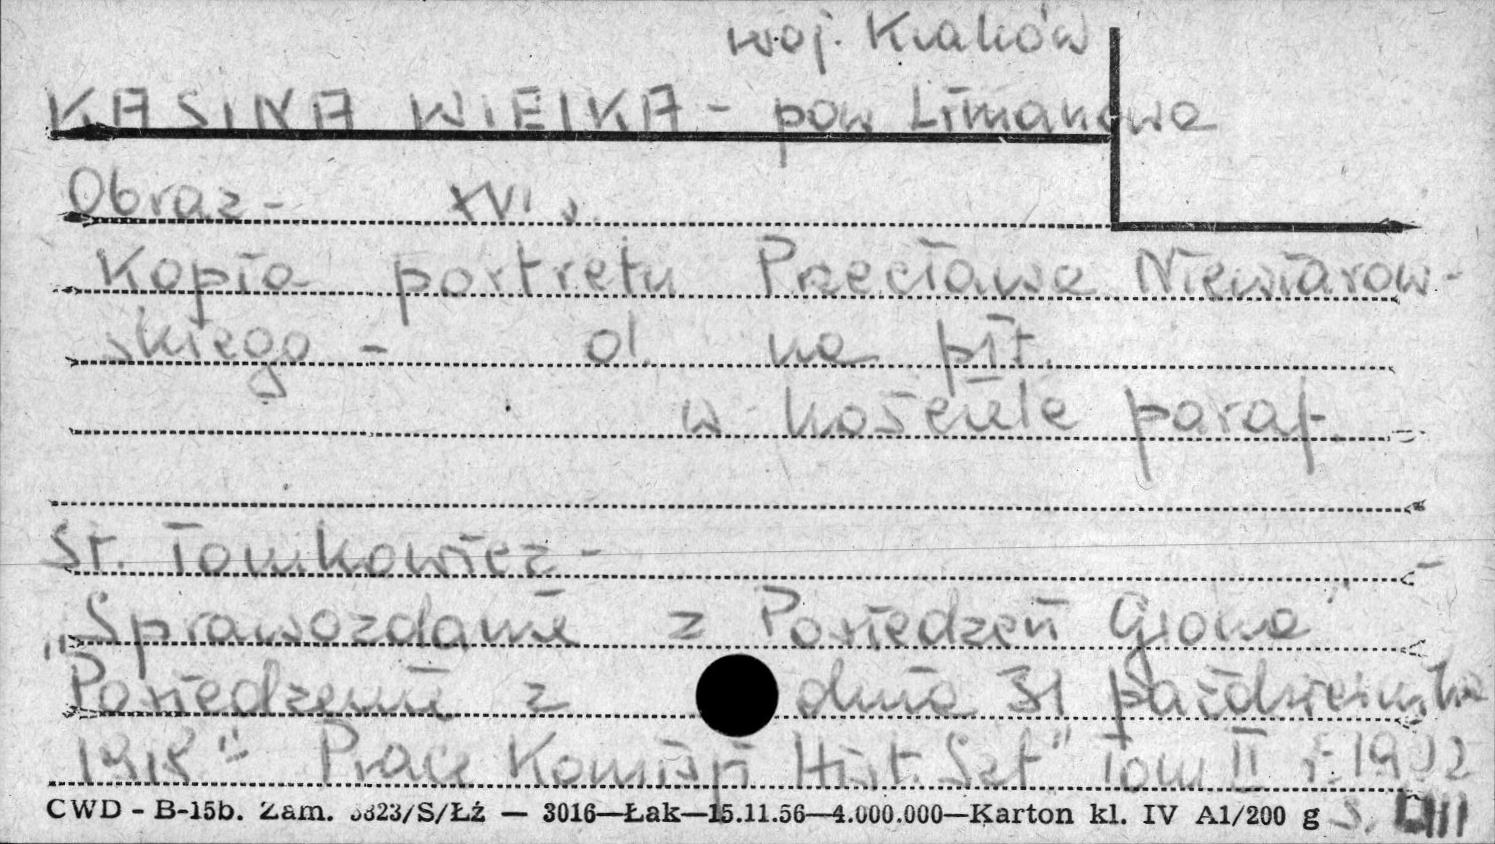 woj. Kraków
KASINA WIELKA - pow Limanowa
Obraz - XVI
Kopia portretu Przecława Niewiarow-
skiego - ol. na płt.
w kościele paraf.
St. Tomkowicz -
"Sprawozdanie z Posiedzeń Grona"
Posiedzenie z dnia 31 października
" Prace Komisji Hist. Szt" Tom II r.
CWD - B-15b. Zam. 3823/S/Łż — 3016—Łak—15.11.56—4.000.000—Karton kl. IV A1/200 g s.